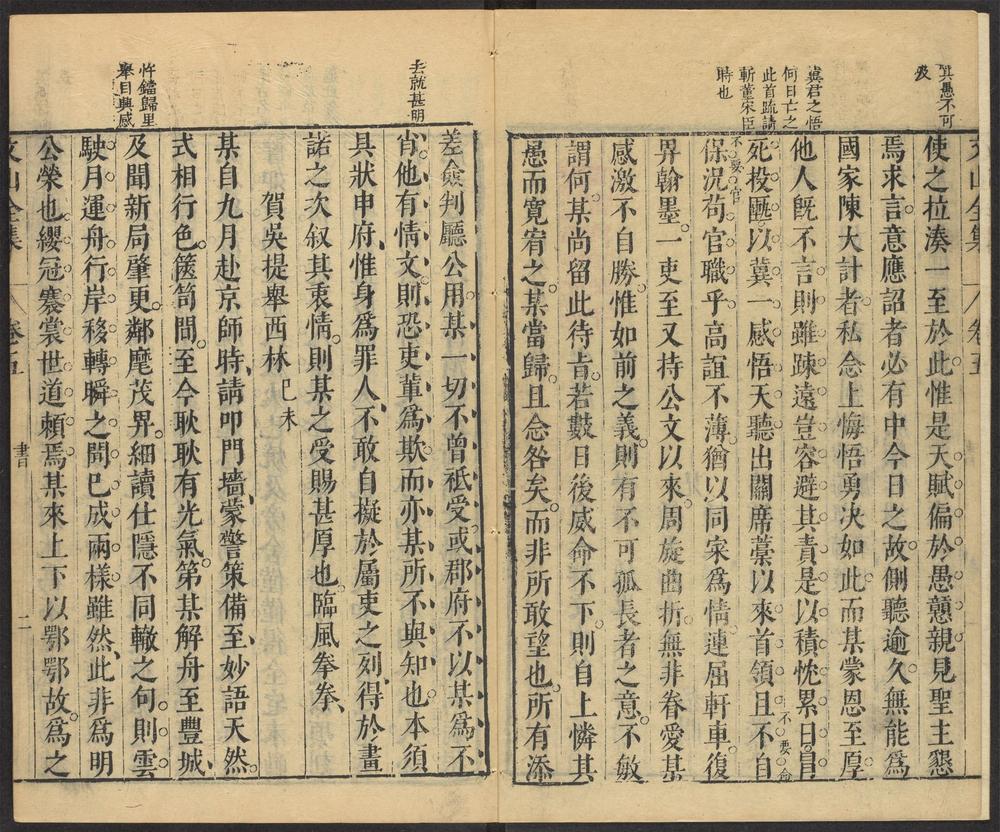 其愚不可
及
文山全集 卷五
使之拉湊一至於此惟是天賦偏於愚戇親見聖主懇
焉求言意應詔者必有中今日之故側聽逾久無能爲
國家陳大計者私念上悔悟勇決如此而某蒙恩至厚
冀君之悟
何日亡之
此首疏請
斬董宋臣
時也
他人旣不言則雖踈遠豈容避其責是以積忱累日冐
死投匭以冀一感悟天聽出關席藁以來首領且不自
不要命
不要官
保況苟官職乎高誼不薄猶以同家爲情連屈軒車復
畀翰墨一吏至又持公文以來周旋曲折無非眷愛某
感激不自勝惟如前之義則有不可孤長者之意不敏
謂何某尚留此待旨若數日後威命不下則自上憐其
愚而寬宥之某當歸且念咎矣而非所敢望也所有添
去就甚明
差僉判廳公用某一切不曾祇受或郡府不以某爲不
肖他有情文則恐吏輩爲欺而亦某所不與知也本須
具狀申府惟身爲罪人不敢自擬於屬吏之刻得於畫
諾之次叙其衷情則某之受賜甚厚也臨風拳拳
賀吳提舉西林己未
某自九月赴京師時請叩門墻蒙警策備至妙語天然
式相行色篋笥間至今耿耿有光氣第某解舟至豐城
忤鐺歸里
舉目興感
及聞新局肇更鄰麾茂畀細讀仕隱不同轍之句則雲
駛月運舟行岸移轉瞬之間已成兩樣雖然此非爲明
公榮也纓冠褰裳世道賴焉某來上下以鄂鄂故爲之
文山全集 卷五 書 二